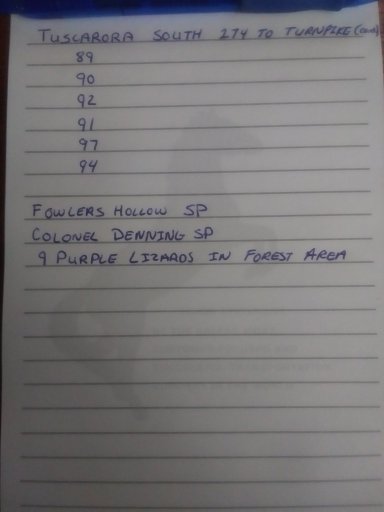 TUSCARORA SOUTH 274 TO TURNPIKE (CONT)
89
90
92
91
97
94
FOWLERS HOLLOW SP
COLONEL DENNING SP
9 PURPLE LIZARDS IN FOREST AREA